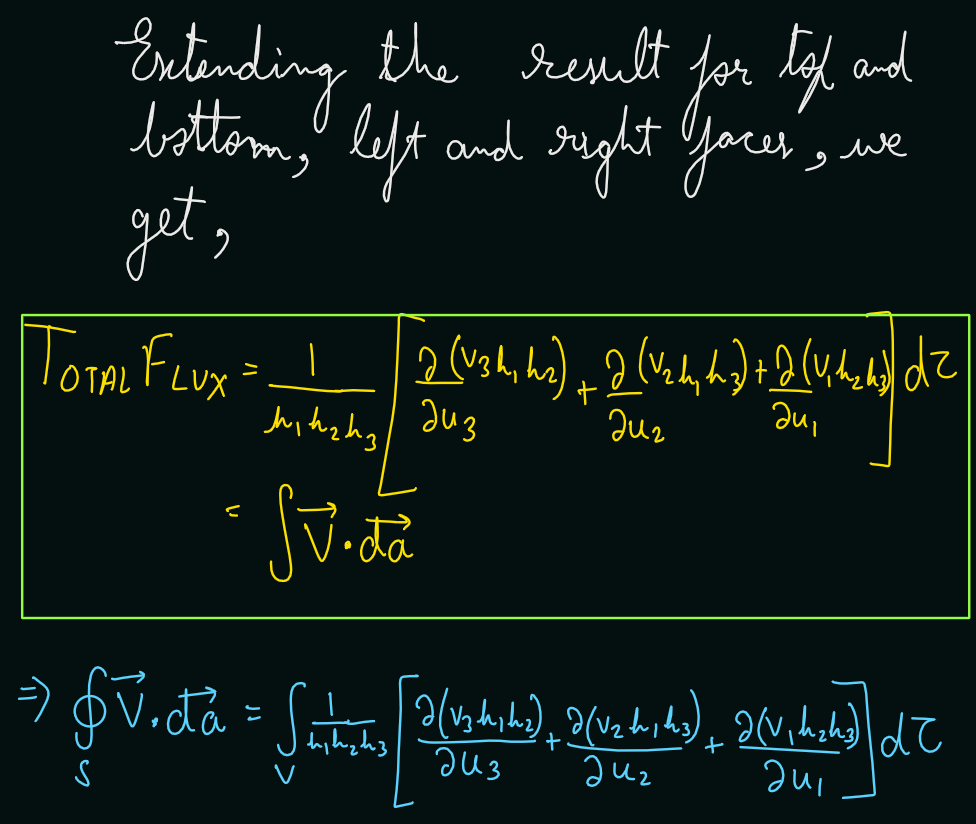 Extending the result for top and
bottom, left and right faces, we
get,
TOTAL FLUX = 1/(h₁h₂h₃) [ ∂(V₃h₁h₂)/∂u₃ + ∂(V₂h₁h₃)/∂u₂ + ∂(V₁h₂h₃)/∂u₁ ] dτ
= ∫ V⃗ · d⃗a
⇒ ∮_S V⃗ · d⃗a = ∫_V 1/(h₁h₂h₃) [ ∂(V₃h₁h₂)/∂u₃ + ∂(V₂h₁h₃)/∂u₂ + ∂(V₁h₂h₃)/∂u₁ ] dτ